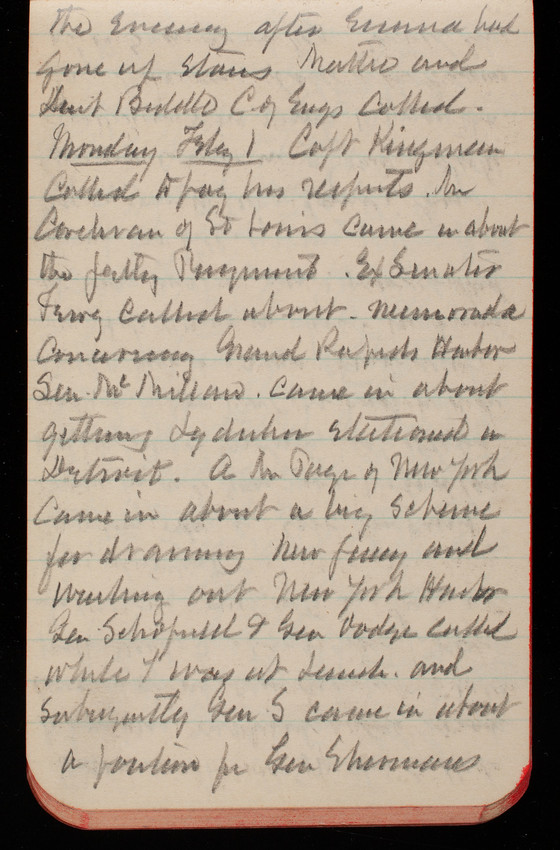 the evening after Emma had
gone up stairs Mattie and
Lieut Biddle C of Engs called.
Monday Feby 1 Capt Kingman
called to pay his respects. Mr
Cochran of St Louis came in about
the Jetty Payment. Ex Senator
Ferry called about memoranda
concerning Grand Rapids Harbor
Sen McMillan. came in about
getting Lydecker stationed in
Detroit. A Mr Page of New York
came in about a big scheme
for draining New Jersey and
washing out New York Harbor
Gen Schofield & Gen Dodge called
while I was at Lunch. and
subsequently Gen S came in about
a position for Gen Shermans